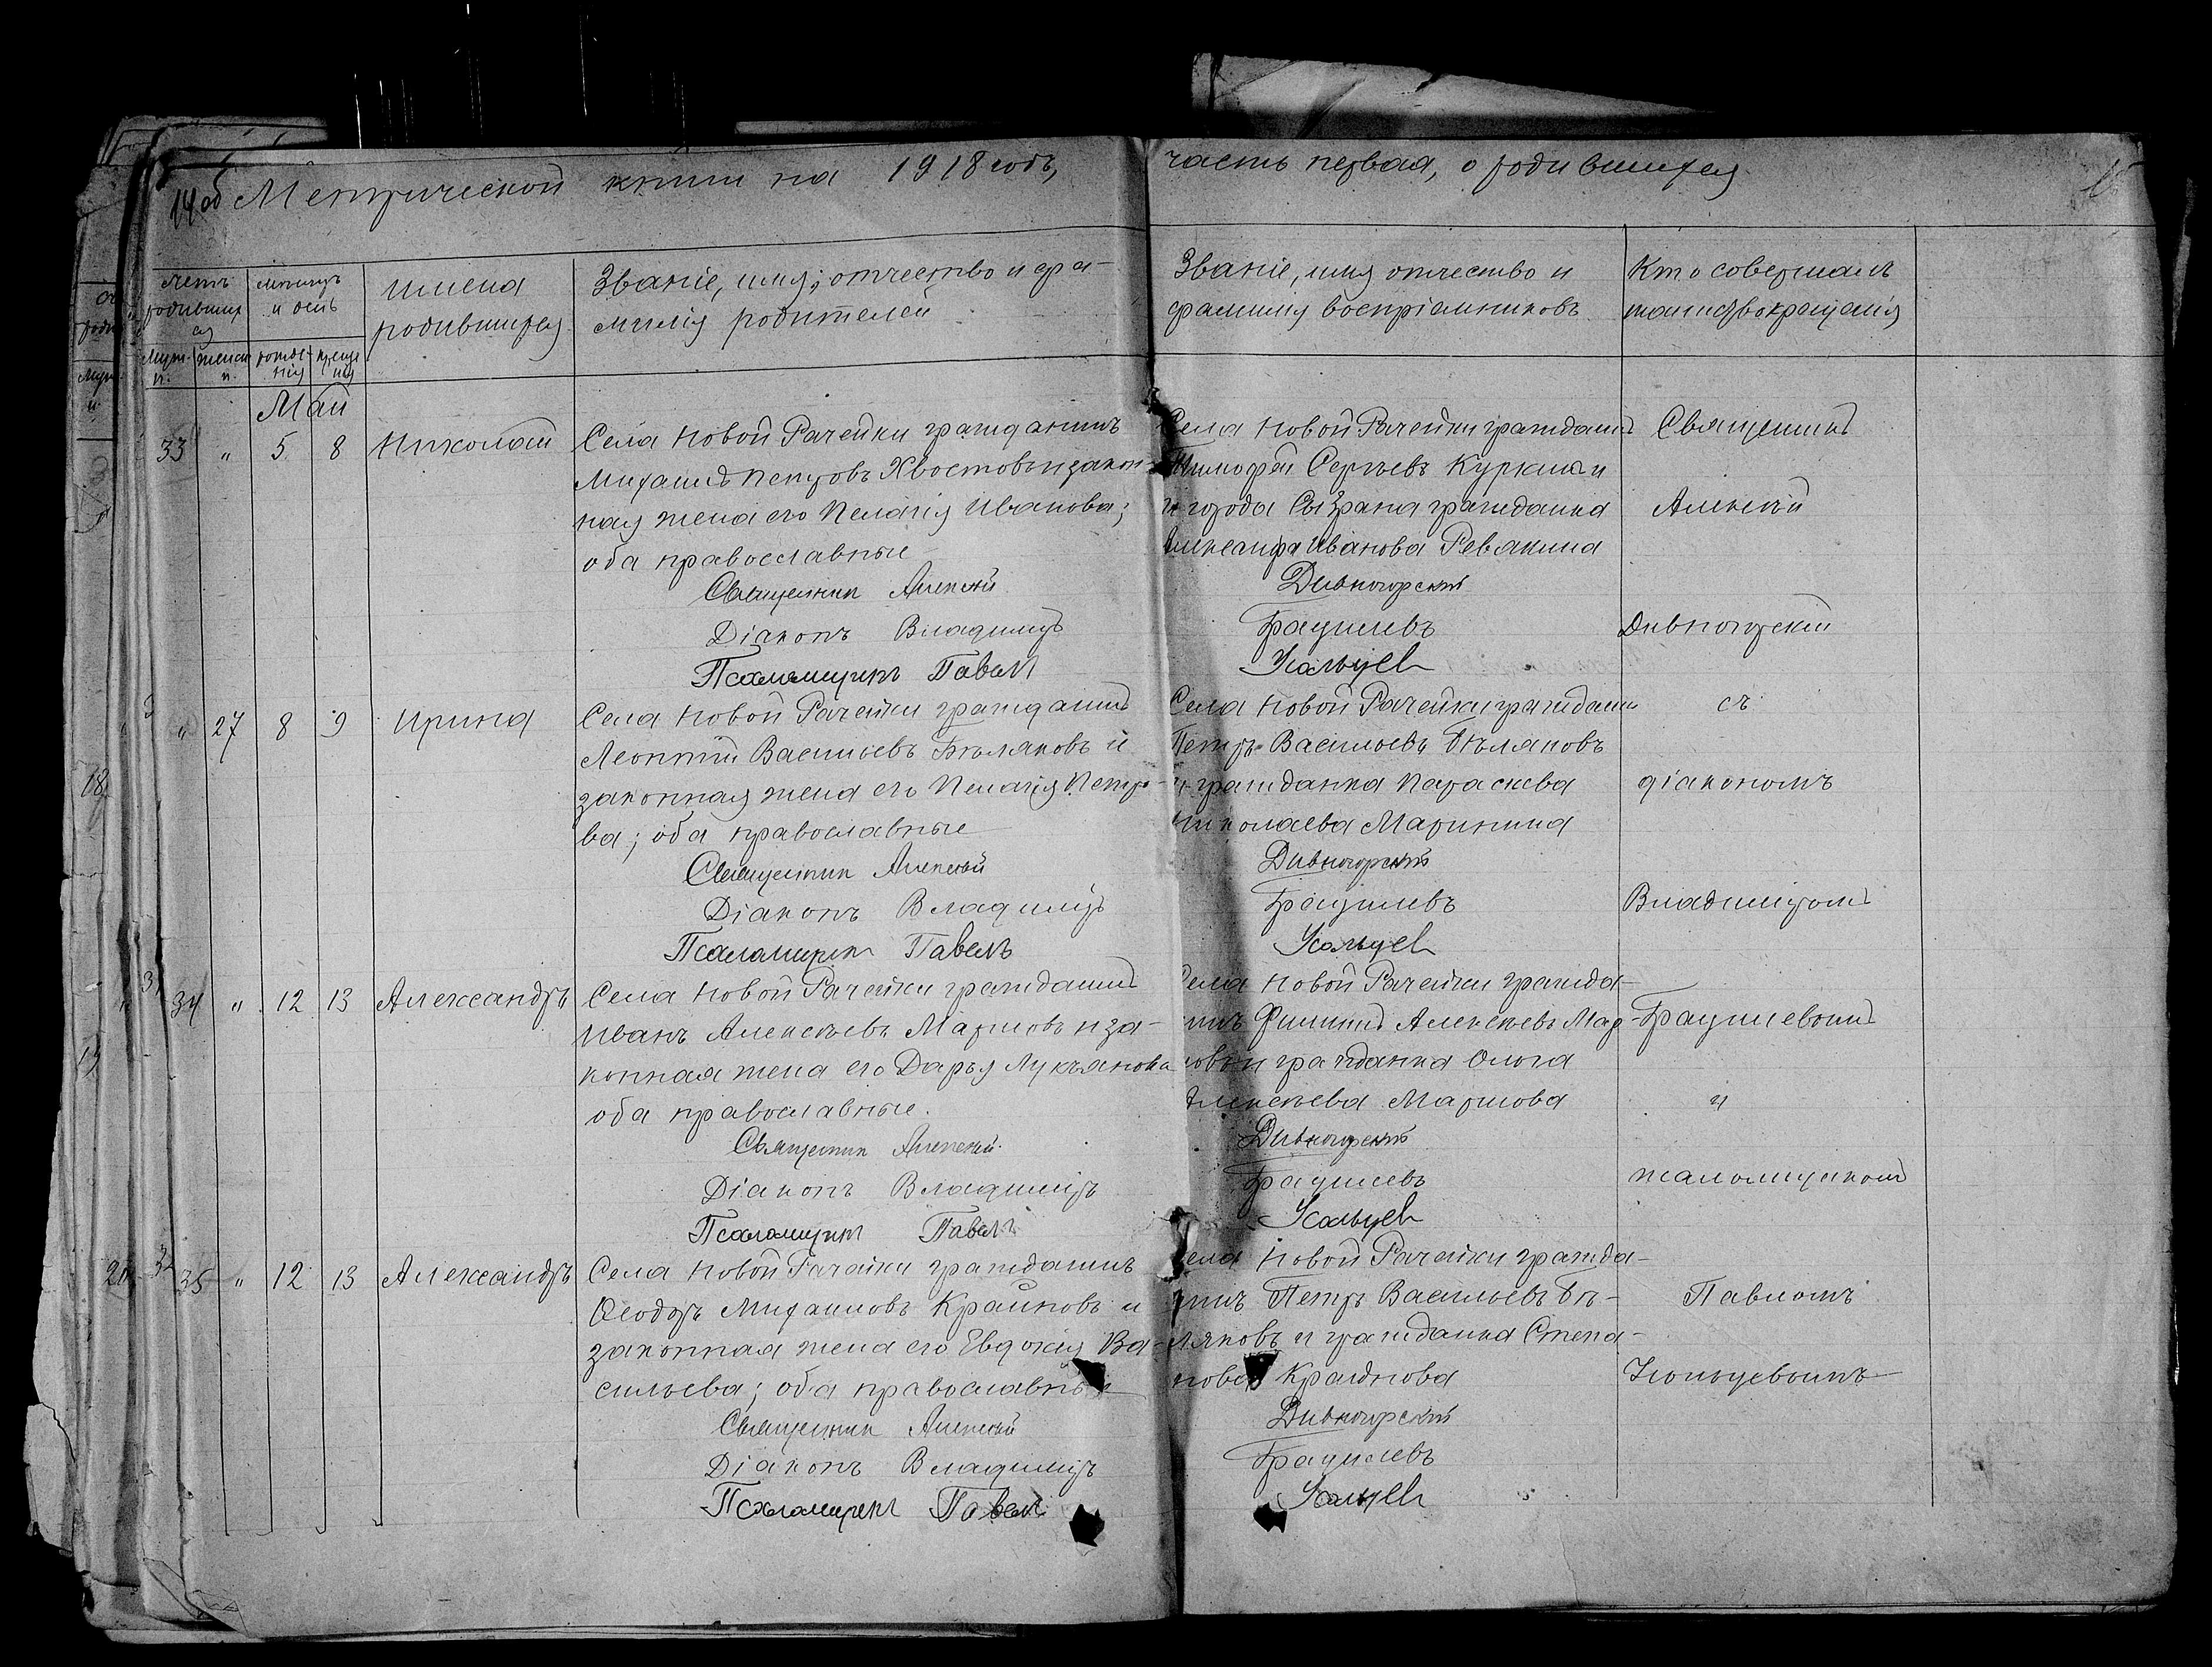 14 об Метрической книги на 1918 годъ,
часть первая, о родившихся
15
счетъ родившихся
мѣсяцъ и день
имена
родившихся
Званіе, имя, отчество и фа-
милія родителей
Званіе, имя отчество и
фамилія воспріемниковъ
Кто совершалъ
таинство крещенія
Муж. п.
женск п.
рожденія
крещенія
Май
33 " 5 8 Николай
Села Новой Рачейки гражданинъ
Михаилъ Петровъ Хвостовъ и закон-
ная жена его Пелагія Иванова;
оба православные
Священник Алексей
Діаконъ Владимиръ
Псаломщикъ Павел
Села Новой Рачейки гражданинъ
Тимофей Сергѣевъ Куркин и
и города Сызрани гражданка
Александра Иванова Ревякина
Дивногорскій
Усольцев
Священникъ
Алексѣй
Дивногорскій
" 27 8 9 Ирина
Села Новой Рачейки гражданинъ
Леонтій Васильевъ Бѣляковъ и
законная жена его Пелагія Петро-
ва; оба православные
Священник Алексей
Діаконъ Владимиръ
Псаломщикъ Павелъ
Села Новой Рачейки гражданинъ
Петръ Васильевъ Бѣляковъ
и гражданка Параскева
Николаева Маринина
Дивногорскій
Усольцев
съ
діакономъ
Владиміромъ
34 " 12 13 Александръ
Села Новой Рачейки гражданинъ
Иванъ Алексѣевъ Марловъ и за-
конная жена его Дарья Лукьянова
оба православные.
Священник Алексей
Діаконъ Владимиръ
Псаломщикъ Павелъ
Села Новой Рачейки гражда-
нинъ Филиппъ Алексѣевъ Мар-
ловъ и гражданка Ольга
Алексѣева Марлова
Дивногорскій
Усольцев
и
псаломщикомъ
35 " 12 13 Александръ
Села Новой Рачейки гражданинъ
Ѳеодоръ Михаиловъ Крайновъ и
законная жена его Евдокія Ва-
сильева; оба православные
Священник Алексей
Діаконъ Владимиръ
Псаломщикъ Павел
Села Новой Рачейки гражда-
нинъ Петръ Васильевъ Бѣ-
ляковъ и гражданка Степа-
нова Крайнова
Дивногорскій
Усольцев
Павломъ
Усольцевымъ